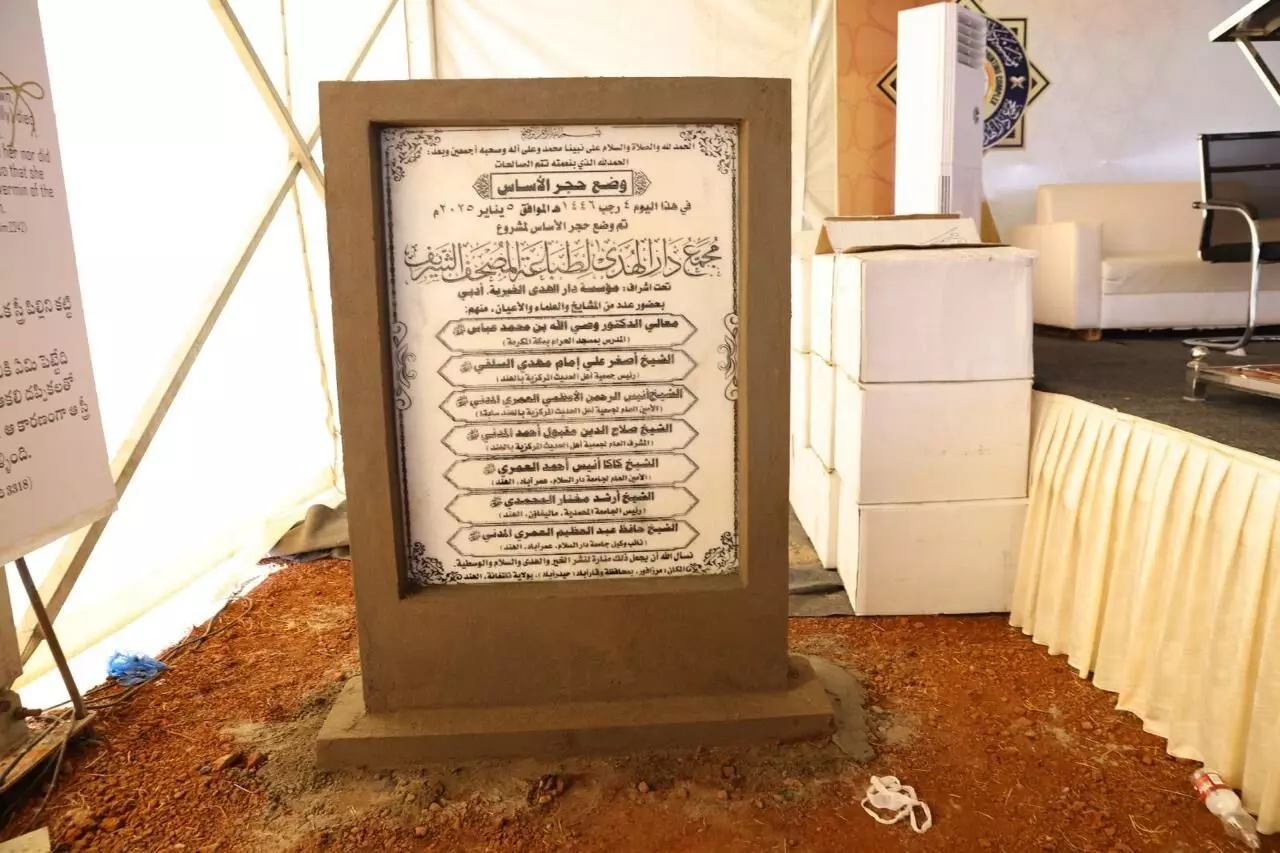 الحمد لله والصلاة والسلام على نبينا محمد وعلى آله وصحبه أجمعين وبعد:
الحمدلله الذي بنعمته تتم الصالحات
وضع حجر الأساس
في هذا اليوم ٤ رجب ١٤٤٦ هـ الموافق ٥ يناير ٢٠٢٥م
تم وضع حجر الأساس لمشروع
مجمع دار الهدى لطباعة المصحف الشريف
تحت اشراف: مؤسسة دار الهدى الخيرية. أدبي
بحضور عدد من المشايخ والعلماء والأعيان، منهم:
معالي الدكتور وصي الله بن محمد عباس
(المدرس بمسجد الحرام بمكة المكرمة)
الشيخ أصغر علي إمام مهدي السلفي
(رئيس جمعية أهل الحديث المركزية بالهند)
الشيخ أنيس الرحمن الأعظمي العمري المدني
(الأمين العام لجمعية أهل الحديث المركزية بالهند سابقا)
الشيخ صلاح الدين مقبول أحمد المدني
(المشرف العام لجمعية أهل الحديث المركزية بالهند)
الشيخ كاكا أنيس أحمد العمري
(الأمين العام لجامعة دار السلام، عمرآباد، الهند)
الشيخ أرشد مختار المحمدي
(رئيس الجامعة المحمدية، ماليغاؤن، الهند)
الشيخ حافظ عبد العظيم العمري المدني
(نائب وكيل جامعة دار السلام، عمرآباد، الهند)
نسال الله أن يجعل ذلك منارة لنشر الخير والهدى والسلام والوسطية.
المكان: مرزافور، بمحافظة وقارآباد( حيدرآباد )، بولاية تلنغانة، الهند
her nor did
so that she
vermin of the
2242)
స్త్రీ పిల్లిని కట్టి
ఏమి పెట్టేది
ఆకలి దప్పికలతో
ఆ కారణంగా ఆ స్త్రీ
3318)
COMPLEX